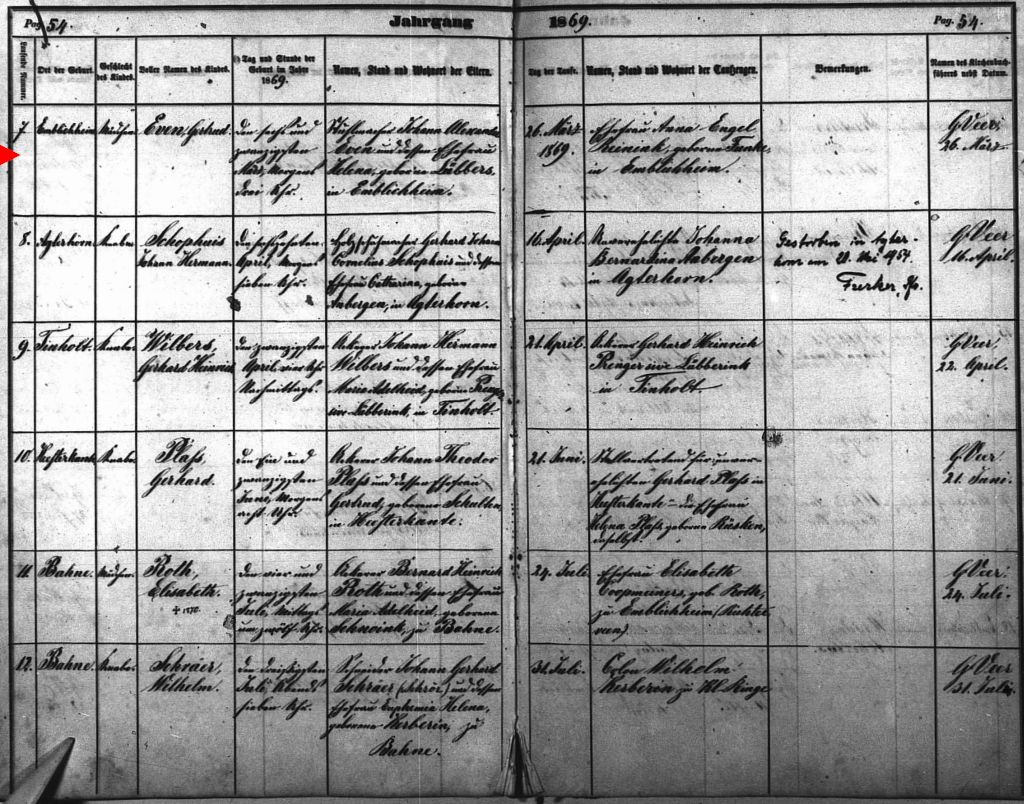 Pag. 54. Jahrgang 1869. Pag. 54.
Laufende Nummer.
Ort der Geburt.
Geschlecht des Kindes.
Voller Namen des Kindes.
Tag und Stunde der
Geburt im Jahre
1869.
Namen, Stand und Wohnort der Eltern.
Tag der Taufe.
Namen, Stand und Wohnort der Taufzeugen.
Bemerkungen.
Namen des Kirchenbuch-
führers nebst Datum.
7.
Emblichheim
Mädchen
Even, Gertrud.
Den sechs und
zwanzigsten
März, Morgens
drei Uhr.
Stuhlmacher Johann Alexander
Even und dessen Ehefrau
Helena, geborne Lübbers,
in Emblichheim.
26. März
1869.
Ehefrau Anna Engel
geborne
in Emblichheim.
GVeer
26. März
8.
Agterhorn
Knabe
Schophuis
Johann Hermann.
Den
April, Morgens
sieben Uhr.
Holzschuhmacher Gerhard Johann
Cornelius Schophuis und dessen
Ehefrau Catharina, geborne
Aabergen, in Agterhorn.
16. April.
Unverehelichte Johanna
Bernardina Aabergen
in Agterhorn.
Gestorben in Agter-
horn am 20. Mai 1954.
GVeer
16. April.
9.
Tinholt.
Knabe
Wilbers,
Gerhard Heinrich
Den zwanzigsten
April, vier Uhr
Nachmittags.
Ackerer Johann Hermann
Wilbers und dessen Ehefrau
Maria Adelheid, geborne
sive Lübberink, in Tinholt.
21. April.
Ackerer Gerhard Heinrich
sive Lübberink
in Tinholt.
GVeer
22. April.
10.
Heesterkante
Knabe
Plaß,
Gerhard.
Den Ein und
zwanzigsten
Juni, Morgens
acht Uhr.
Ackerer Johann Theodor
Plaß und dessen Ehefrau
Gertrud, geborne Schulten,
in Heesterkante.
21. Juni.
Stellvertretend für unver-
ehelichten Gerhard Plaß in
Heesterkante - die Ehefrau
Helena Plaß, geborne
daselbst.
GVeer
21. Juni.
11.
Bahne.
Mädchen
Roth,
Elisabeth.
Den vier und
zwanzigsten
Juli, Mittags
um zwölf Uhr.
Ackerer Bernard Heinrich
Roth und dessen Ehefrau
Maria Adelheid, geborne
zu Bahne.
24. Juli
Ehefrau Elisabeth
Coopmeiners, geb. Roth,
zu Emblichheim
GVeer
24. Juli.
12.
Bahne.
Knabe
Schräer,
Wilhelm.
Den dreißigsten
Juli, Abends
sieben Uhr.
Schneider Johann Gerhard
Schräer (Schrör) und dessen
Ehefrau Euphemia Helena,
geborene zu
Bahne.
31. Juli.
Colon Wilhelm
zu Kl. Ringe
GVeer
31. Juli.